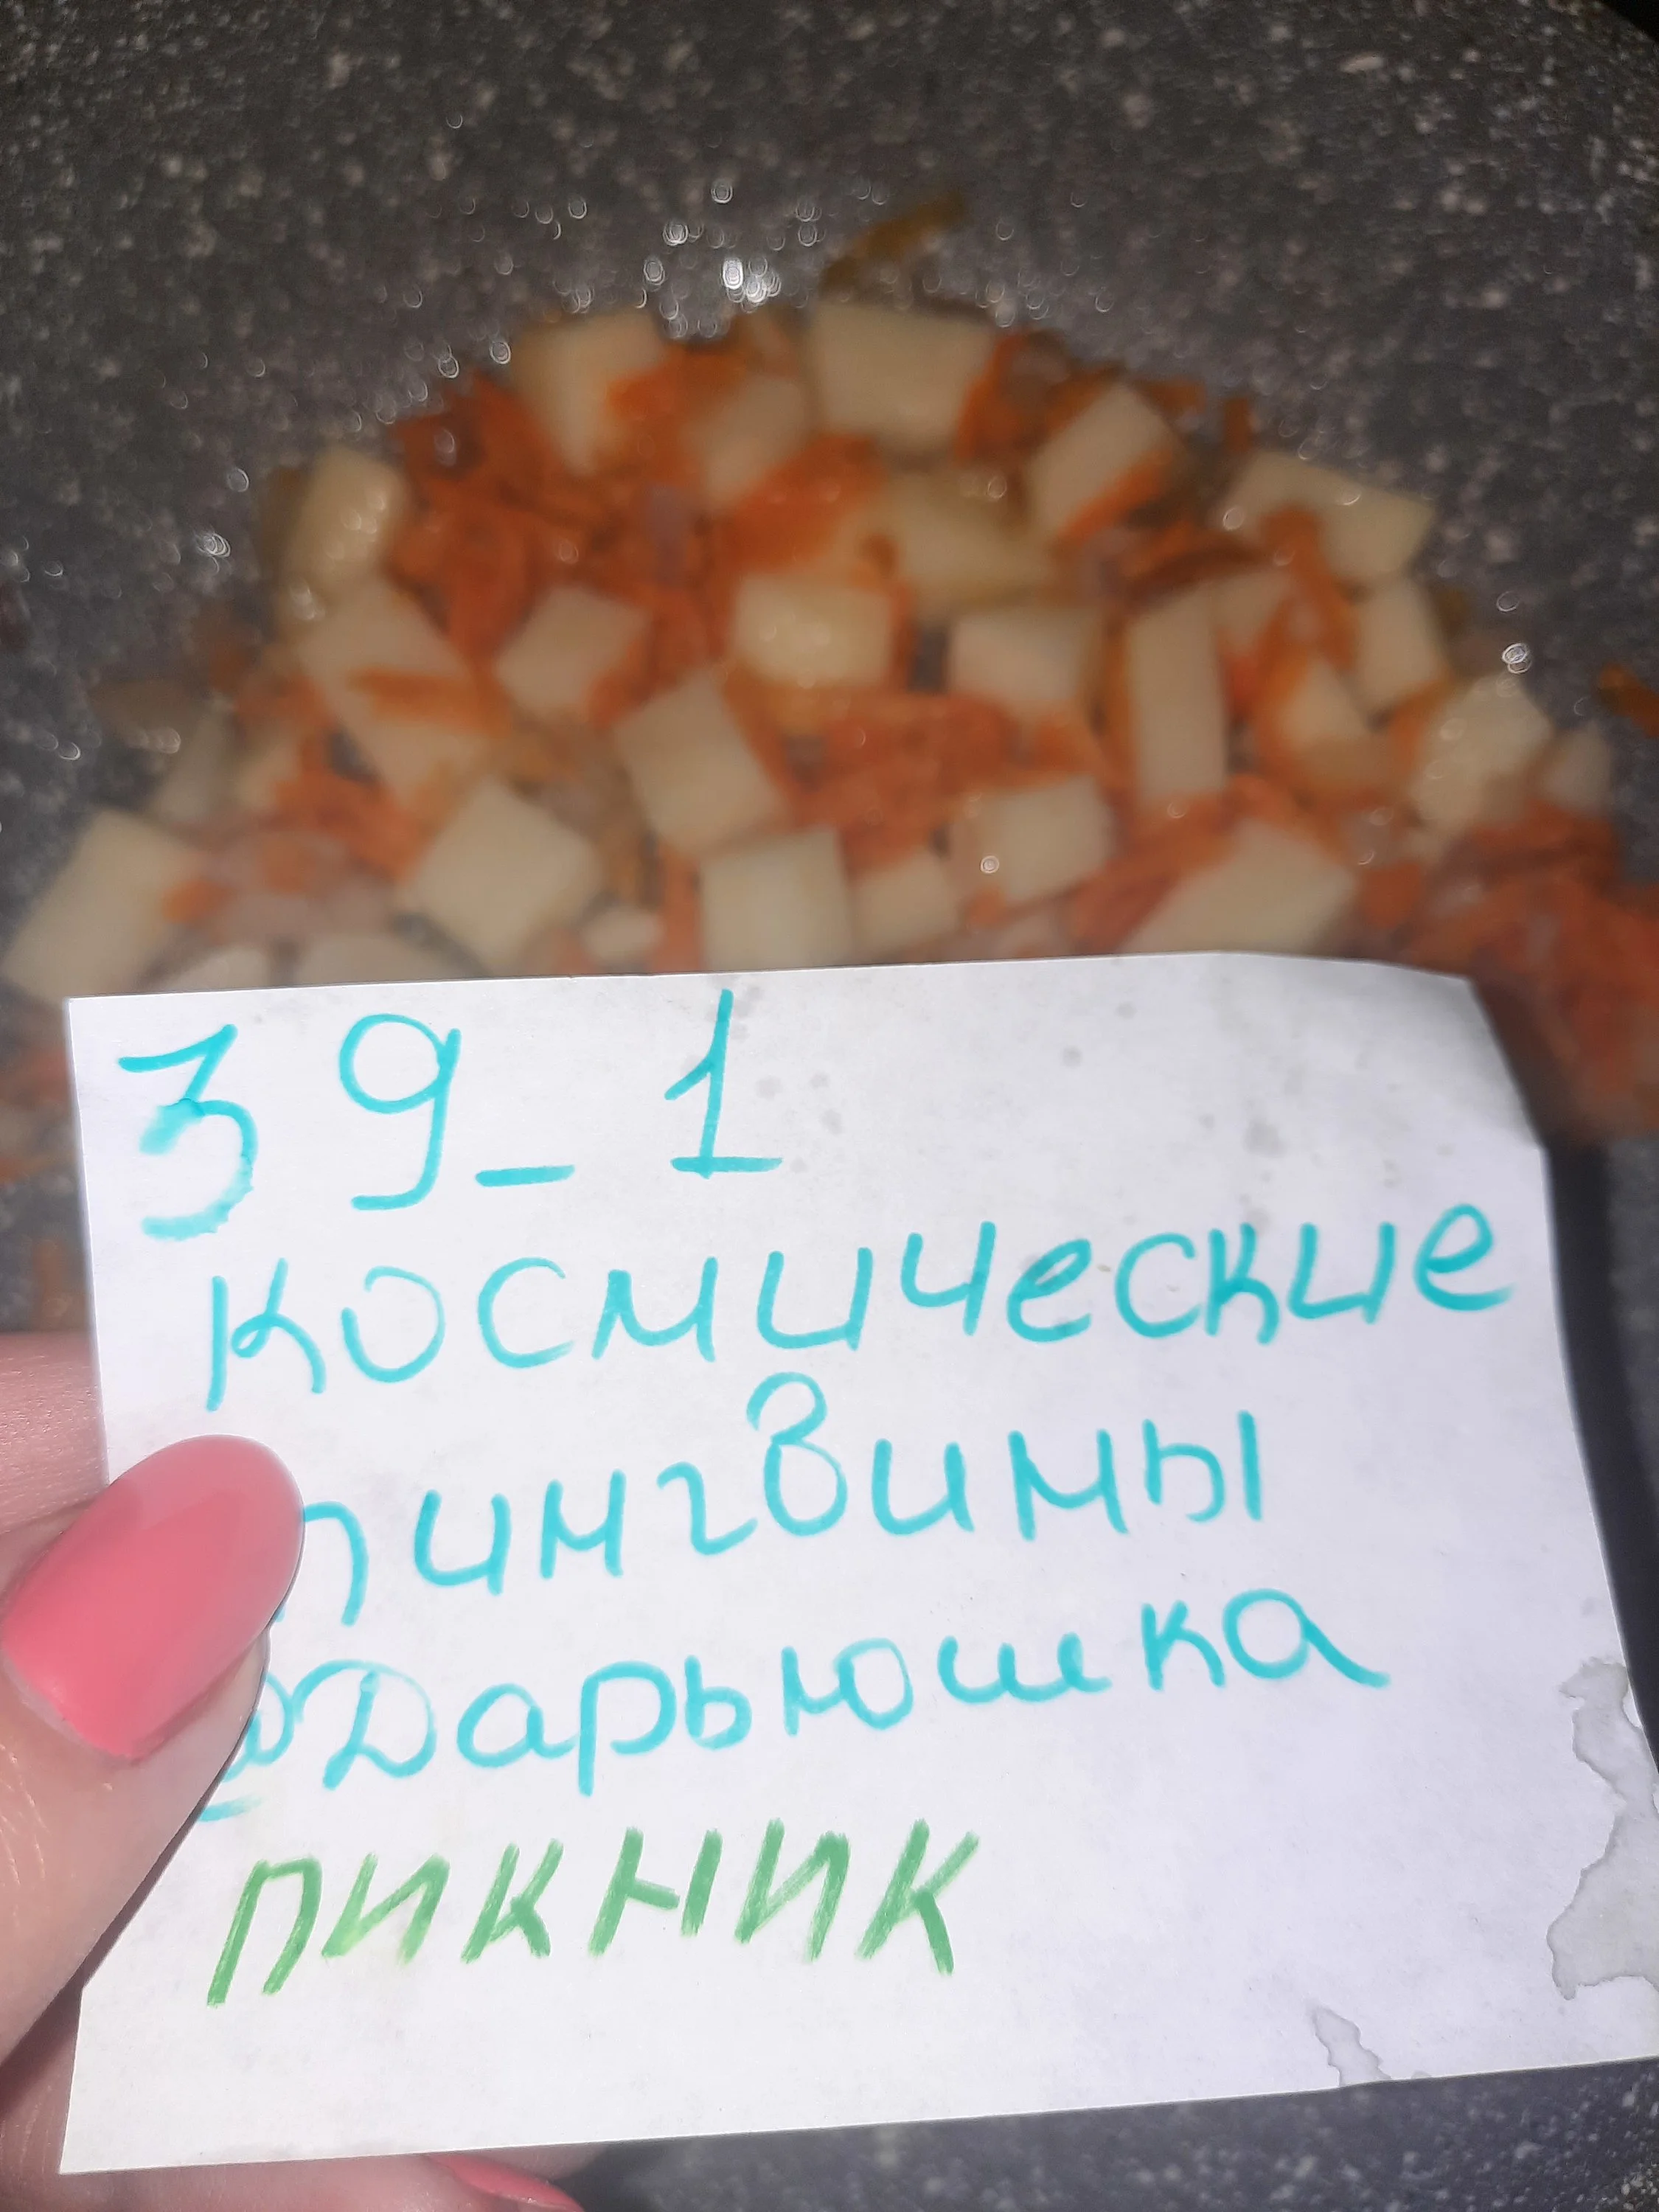 39_1
космические
пингвины
@Дарьюшка
ПИКНИК